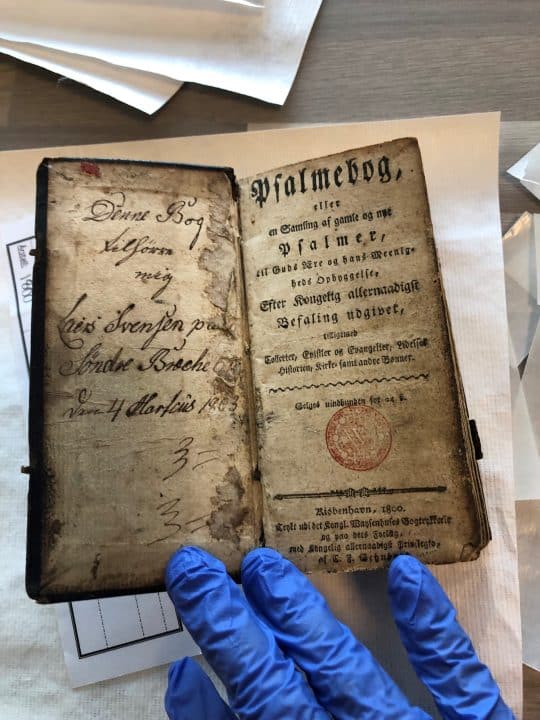 Denne Bog
tilhører
mig
Lars Svensen paa
Søndre Breche
den 4 Martius
3=
3=
Psalmebog,
eller
en Samling af gamle og nye
Psalmer,
til Guds Ære og hans Meenig-
heds Opbyggelse,
Efter Kongelig allernaadigst
Befaling udgivet,
tilligemed
Collecter, Epistler og Evangelier, Lidelses
Historien, Kirke- samt andre Bønner.
Selges uindbunden for 24 ß.
Kiøbenhavn, 1800.
Trykt udi det Kongl. Waysenhuses Bogtrykkerie
og paa dets Forlag,
med Kongelig allernaadigst Privilegio,
af C. F. Schubart
1800